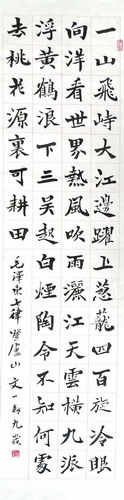 一山飛峙大江邊躍上葱蘢四百旋冷眼
向洋看世界熱風吹雨灑江天雲橫九派
浮黃鶴浪下三吳起白煙陶令不知何處
去桃花源裏可耕田
毛澤东七律登廬山文一九歲